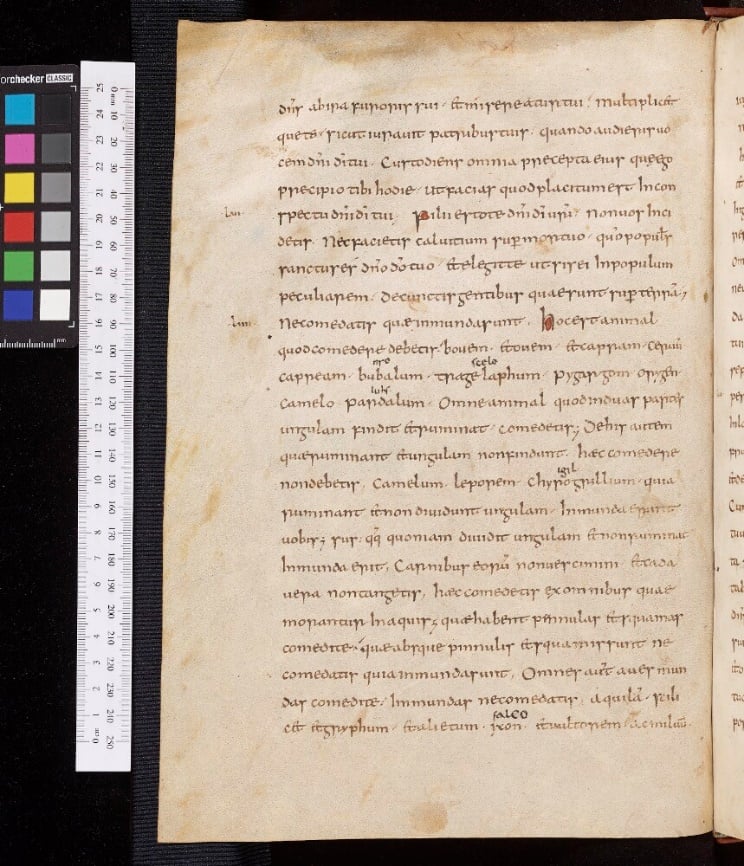 orchecker CLASSIC
dn̄s abira furoris sui · et misereatur tui · multiplicet
que te · sicut iurauit patribus tuis · quando audieris uo
cem dn̄i dī tui · Custodiens omnia precepta eius que ego
precipio tibi hodie · ut facias quod placitum est in con
spectu dn̄i dī tui · filii estote dn̄i dī urī · non uos inci
detis · Nec facietis caluitium sup mortuo · qm̄ populus
sanctus es dn̄o dō tuo · et te legit te ut sis ei in populum
peculiarem · de cunctis gentibus quae sunt sup terrā ;
Ne comedatis quae inmunda sunt · hoc est animal
quod comedere debetis · bouem · et ouem · et capram · ceruū
capream · bubalum · tragelaphum · pygargon · orygen
scelo
camelo pardalum · Omne animal quod in duas partes
ungulam findit et ruminat · comedetis ; De his autem
quae ruminant et ungulam non findunt · haec comedere
non debetis · Camelum · leporem · Chyrogrillium · quia
igil
ruminant et non diuidunt ungulam · Inmunda erunt
uobis ; sus · qq̄ quoniam diuidit ungulam et non ruminat
Inmunda erit · Carnibus eorū non uescimini · et cada
uera non tangetis · haec comedetis ex omnibus quae
morantur in aquis ; quae habent pinnulas et squamas
comedite · quae absque pinnulis et squamis sunt ne
comedatis quia inmunda sunt · Omnes aues mun
das comedite · Inmundas ne comedatis · aquilā · sili
cet et gryphum · et alietum · ixon · et uultorem · ac miluū
falco